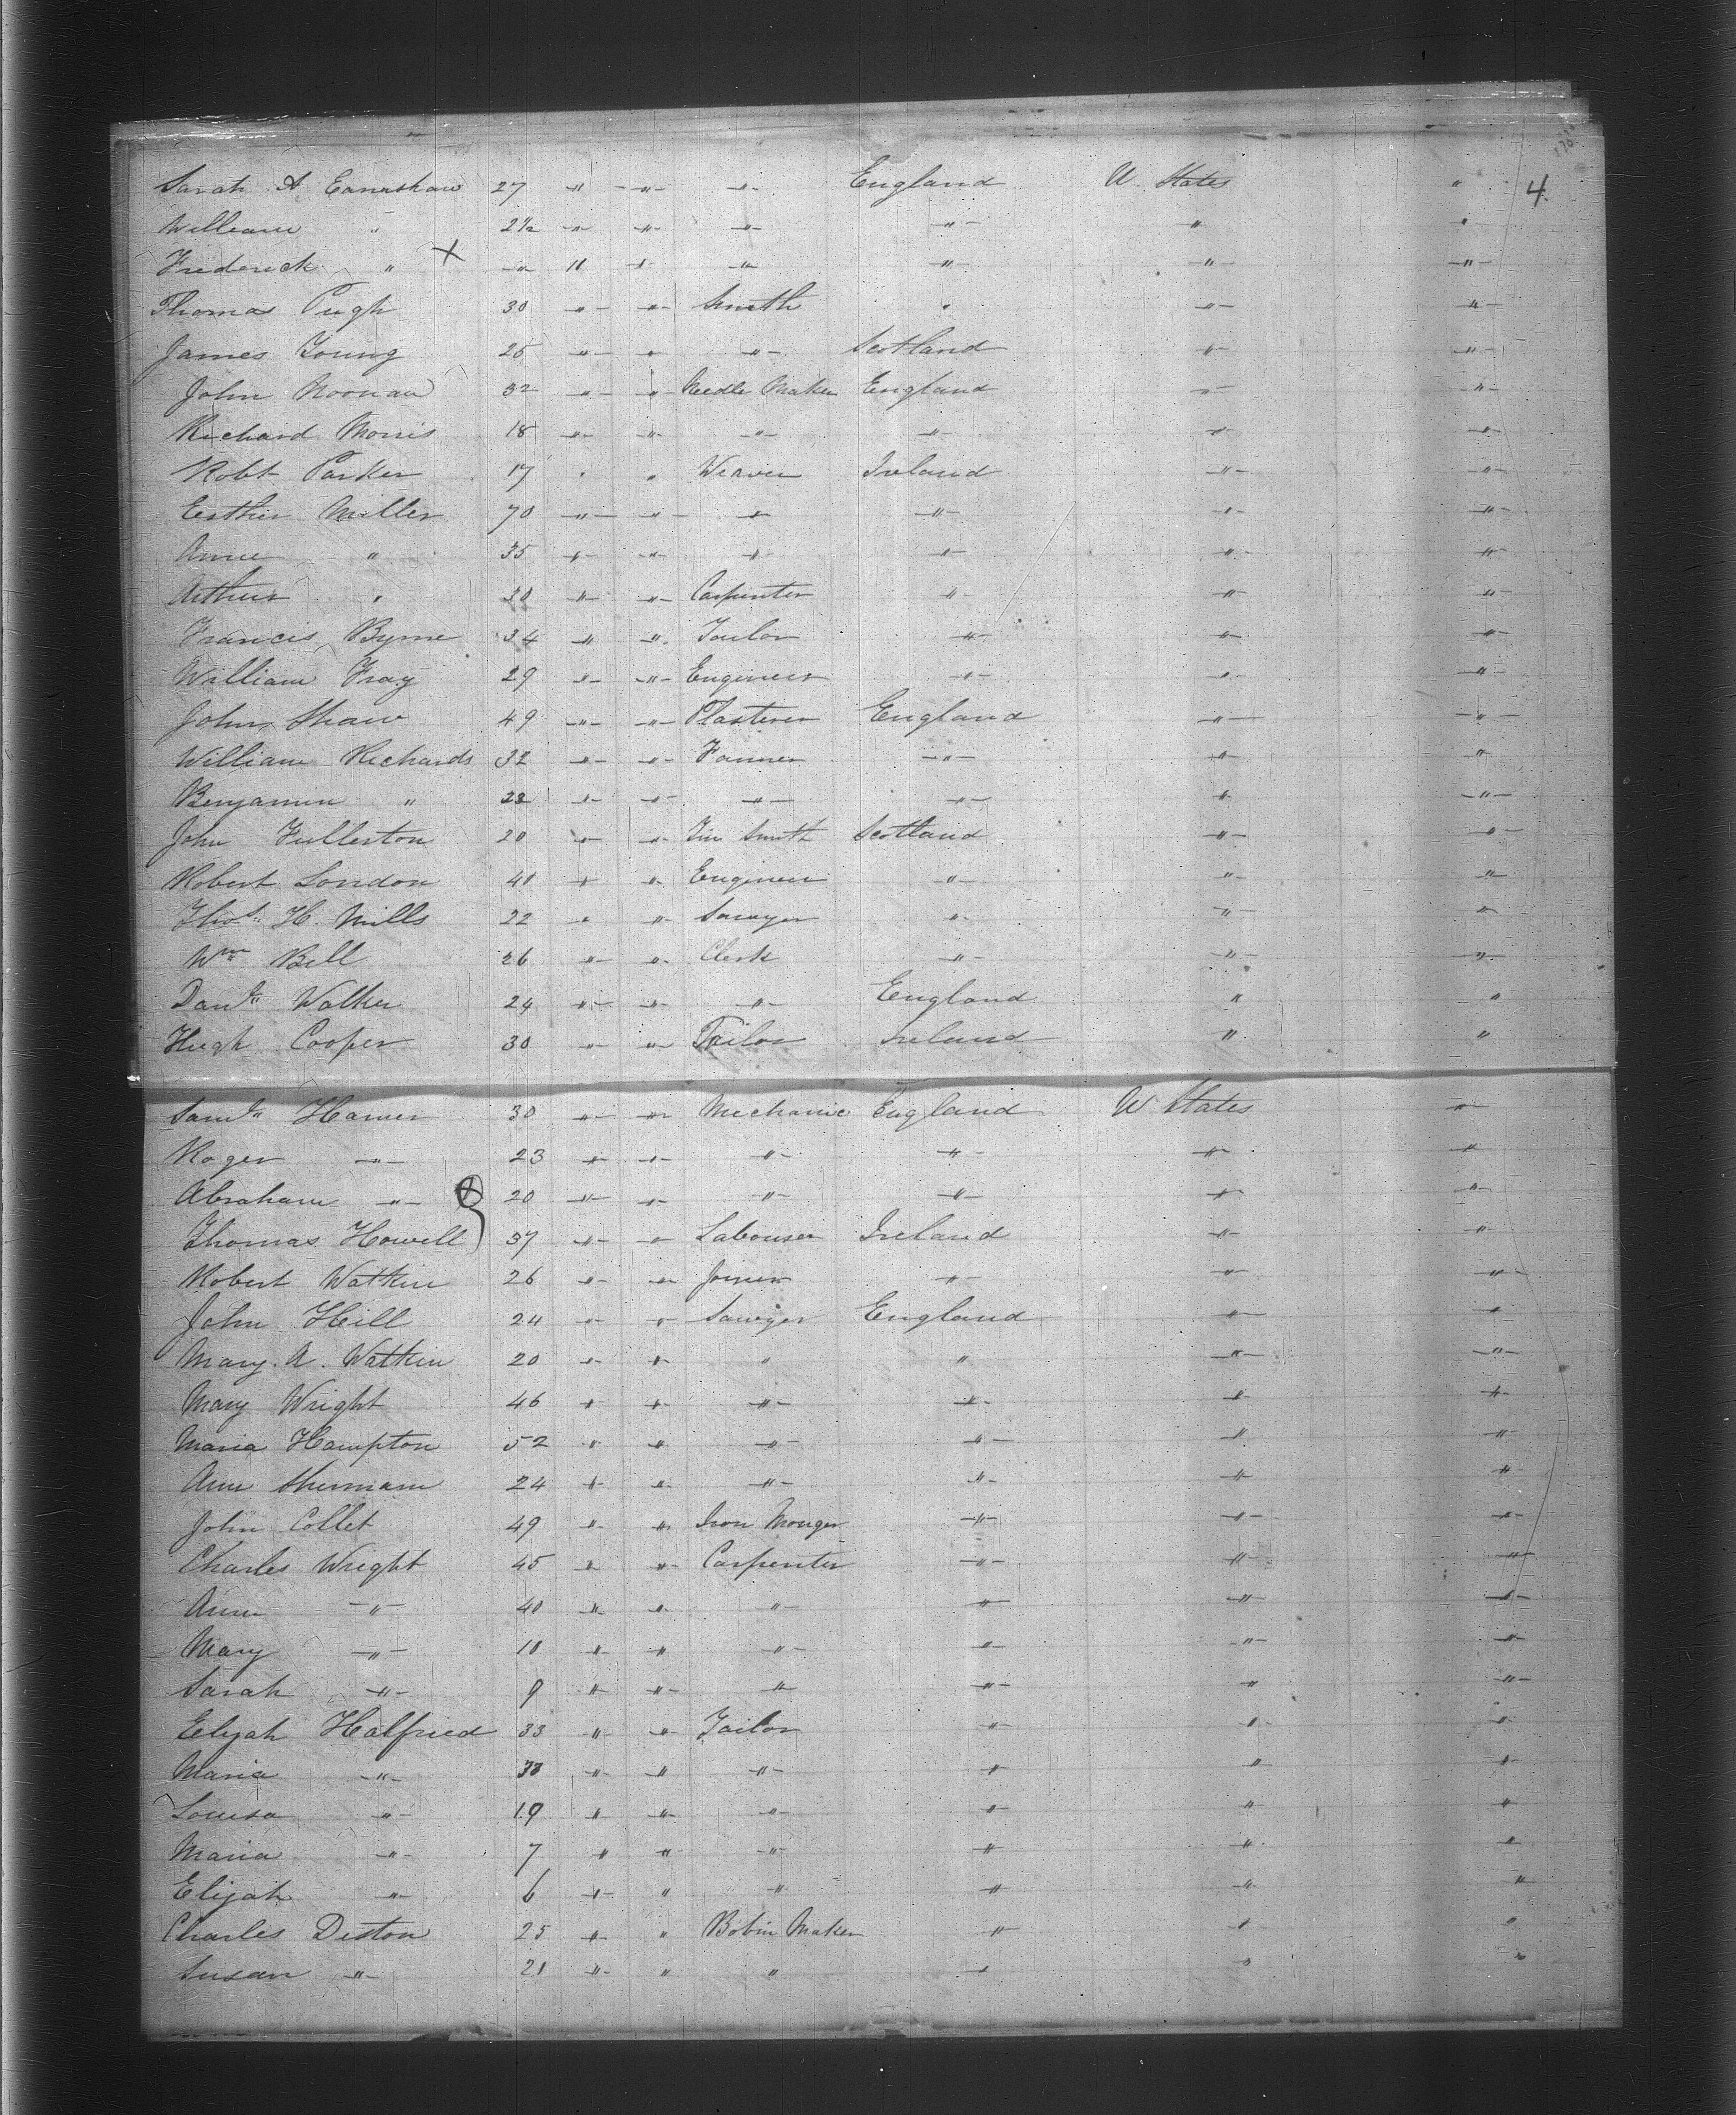 Sarah A Earnshaw 27 " " " England U. States " 4.
William " 2½ " " " " " "
Frederick " X " 11 " " " " "
Thomas Pugh 30 " " Smith " " "
James Young 25 " " " Scotland " "
John Noonan 32 " " Needle Maker England " "
Richard Morris 18 " " " " " "
Robt Parker 17 " " Weaver Ireland " "
Esther Miller 70 " " " " " "
Anne " 35 " " " " " "
Arthur " 30 " " Carpenter " " "
Francis Byrne 34 " " Tailor " " "
William Fray 29 " " Engineer " " "
John Shaw 49 " " Plasterer England " "
William Richards 32 " " Farmer " " "
Benjamin " 22 " " " " " "
John Fullerton 20 " " Tin Smith Scotland " "
Robert London 40 " " Engineer " " "
Thos. H. Mills 22 " " Sawyer " " "
Wm Bell 26 " " Clerk " " "
Danl. Walker 24 " " " England " "
Hugh Cooper 30 " " Tailor Ireland " "
Saml. Hamer 30 " " Mechanic England U States "
Roger " 23 " " " " " "
Abraham " X 20 " " " " " "
Thomas Howell 37 " " Labourer Ireland " "
Robert Watkin 26 " " Joiner " " "
John Hill 24 " " Sawyer England " "
Mary. A. Watkin 20 " " " " " "
Mary Wright 46 " " " " " "
Maria Hampton 52 " " " " " "
Ann Shermam 24 " " " " " "
John Collet 49 " " Iron Monger " " "
Charles Wright 45 " " Carpenter " " "
Ann " 40 " " " " " "
Mary " 10 " " " " " "
Sarah " 9 " " " " " "
Elijah Halfried 33 " " Tailor " " "
Maria " 38 " " " " " "
Louisa " 19 " " " " " "
Maria " 7 " " " " " "
Elijah " 6 " " " " " "
Charles Diston 25 " " Bobin Maker " " "
Susan " 21 " " " " " "